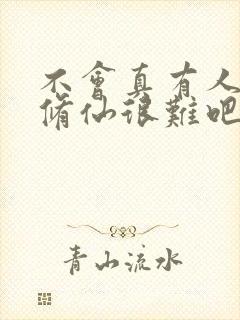 不會真有人
脩仙很難吧
青山流水